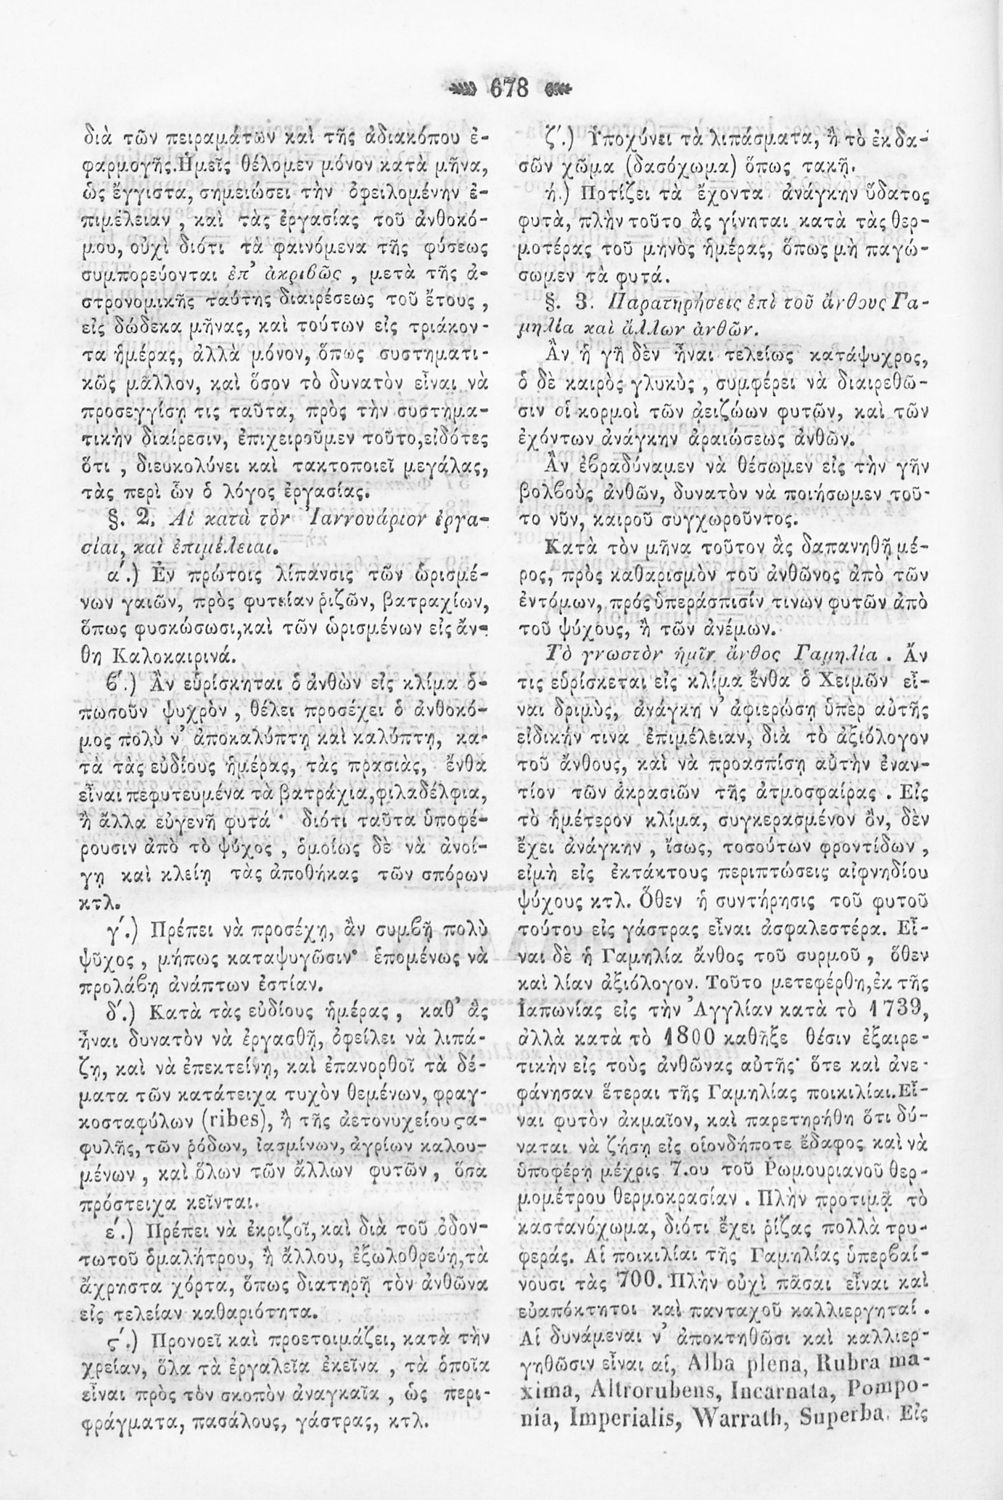 678
διὰ τῶν πειραμάτων καὶ τῆς ἀδιακόπου ἐ-
φαρμογῆς. Ἡμεῖς θέλομεν μόνον κατὰ μῆνα,
ὡς ἔγγιστα, σημειώσει τὴν ὀφειλομένην ἐ-
πιμέλειαν , καὶ τὰς ἐργασίας τοῦ ἀνθοκό-
μου, οὐχὶ διότι τὰ φαινόμενα τῆς φύσεως
συμπορεύονται ἐπ’ ἀκριβῶς , μετὰ τῆς ἀ-
στρονομικῆς ταύτης διαιρέσεως τοῦ ἔτους ,
εἰς δώδεκα μῆνας, καὶ τούτων εἰς τριάκον-
τα ἡμέρας, ἀλλὰ μόνον, ὅπως συστηματι-
κῶς μᾶλλον, καὶ ὅσον τὸ δυνατὸν εἶναι νὰ
προσεγγίσῃ τις ταῦτα, πρὸς τὴν συστημα-
τικὴν διαίρεσιν, ἐπιχειροῦμεν τοῦτο, εἰδότες
ὅτι , διευκολύνει καὶ τακτοποιεῖ μεγάλας,
τὰς περὶ ὧν ὁ λόγος ἐργασίας.
§. 2. Αἱ κατὰ τὸν Ἰαννουάριον ἐργα-
σίαι, καὶ ἐπιμέλειαι.
α΄.) Ἐν πρώτοις λίπανσις τῶν ὡρισμέ-
νων γαιῶν, πρὸς φυτείαν ῥιζῶν, βατραχίων,
ὅπως φυσκώσωσι, καὶ τῶν ὡρισμένων εἰς ἄν-
θη Καλοκαιρινά.
β΄.) Ἂν εὑρίσκηται ὁ ἀνθὼν εἰς κλίμα ὁ-
πωσοῦν ψυχρὸν , θέλει προσέχει ὁ ἀνθοκό-
μος πολὺ ν’ ἀποκαλύπτῃ καὶ καλύπτῃ, κα-
τὰ τὰς εὐδίους ἡμέρας, τὰς πρασιὰς, ἔνθα
εἶναι πεφυτευμένα τὰ βατράχια, φιλαδέλφια,
ἢ ἄλλα εὐγενῆ φυτά · διότι ταῦτα ὑποφέ-
ρουσιν ἀπὸ τὸ ψύχος , ὁμοίως δὲ νὰ ἀνοί-
γῃ καὶ κλείῃ τὰς ἀποθήκας τῶν σπόρων
κτλ.
γ΄.) Πρέπει νὰ προσέχῃ, ἂν συμβῇ πολὺ
ψῦχος , μήπως καταψυγῶσιν· ἑπομένως νὰ
προλάβῃ ἀνάπτων ἑστίαν.
δ΄.) Κατὰ τὰς εὐδίους ἡμέρας , καθ’ ἃς
ἦναι δυνατὸν νὰ ἐργασθῇ, ὀφείλει νὰ λιπά-
ζῃ, καὶ νὰ ἐπεκτείνῃ, καὶ ἐπανορθοῖ τὰ δέ-
ματα τῶν κατάτειχα τυχὸν θεμένων, φραγ-
κοσταφύλων (ribes), ἢ τῆς ἀετονυχείου ϛα-
φυλῆς, τῶν ῥόδων, ἰασμίνων, ἀγρίων καλου-
μένων , καὶ ὅλων τῶν ἄλλων φυτῶν , ὅσα
πρόστειχα κεῖνται.
ε΄.) Πρέπει νὰ ἐκριζοῖ, καὶ διὰ τοῦ ὀδον-
τωτοῦ ὁμαλήτρου, ἢ ἄλλου, ἐξωλοθρεύῃ, τὰ
ἄχρηστα χόρτα, ὅπως διατηρῇ τὸν ἀνθῶνα
εἰς τελείαν καθαριότητα.
ϛ΄.) Προνοεῖ καὶ προετοιμάζει, κατὰ τὴν
χρείαν, ὅλα τὰ ἐργαλεῖα ἐκεῖνα , τὰ ὁποῖα
εἶναι πρὸς τὸν σκοπὸν ἀναγκαῖα , ὡς περι-
φράγματα, πασάλους, γάστρας, κτλ.
ζ΄.) Ὑποχύνει τὰ λιπάσματα, ἢ τὸ ἐκ δα-
σῶν χῶμα (δασόχωμα) ὅπως τακῇ.
ή.) Ποτίζει τὰ ἔχοντα ἀνάγκην ὕδατος
φυτὰ, πλὴν τοῦτο ἂς γίνηται κατὰ τὰς θερ-
μοτέρας τοῦ μηνὸς ἡμέρας, ὅπως μὴ παγώ-
σωμεν τὰ φυτά.
§. 3. Παρατηρήσεις ἐπὶ τοῦ ἄνθους Γα-
μηλία καὶ ἄλλων ἀνθῶν.
Ἂν ἡ γῆ δὲν ἦναι τελείως κατάψυχρος,
ὁ δὲ καιρὸς γλυκὺς , συμφέρει νὰ διαιρεθῶ-
σιν οἱ κορμοὶ τῶν ἀειζώων φυτῶν, καὶ τῶν
ἐχόντων ἀνάγκην ἀραιώσεως ἀνθῶν.
Ἂν ἐβραδύναμεν νὰ θέσωμεν εἰς τὴν γῆν
βολβοὺς ἀνθῶν, δυνατὸν νὰ ποιήσωμεν τοῦ-
το νῦν, καιροῦ συγχωροῦντος.
Κατὰ τὸν μῆνα τοῦτον ἂς δαπανηθῇ μέ-
ρος, πρὸς καθαρισμὸν τοῦ ἀνθῶνος ἀπὸ τῶν
ἐντόμων, πρός ὑπεράσπισίν τινων φυτῶν ἀπὸ
τοῦ ψύχους, ἢ τῶν ἀνέμων.
Τὸ γνωστὸν ἡμῖν ἄνθος Γαμηλία . Ἄν
τις εὑρίσκεται εἰς κλίμα ἔνθα ὁ Χειμῶν εἶ-
ναι δριμὺς, ἀνάγκη ν’ ἀφιερώσῃ ὑπὲρ αὐτῆς
εἰδικήν τινα ἐπιμέλειαν, διὰ τὸ ἀξιόλογον
τοῦ ἄνθους, καὶ νὰ προασπίσῃ αὐτὴν ἐναν-
τίον τῶν ἀκρασιῶν τῆς ἀτμοσφαίρας . Εἰς
τὸ ἡμέτερον κλίμα, συγκερασμένον ὂν, δὲν
ἔχει ἀνάγκην , ἴσως, τοσούτων φροντίδων ,
εἰμὴ εἰς ἐκτάκτους περιπτώσεις αἰφνηδίου
ψύχους κτλ. Ὅθεν ἡ συντήρησις τοῦ φυτοῦ
τούτου εἰς γάστρας εἶναι ἀσφαλεστέρα. Εἶ-
ναι δὲ ἡ Γαμηλία ἄνθος τοῦ συρμοῦ , ὅθεν
καὶ λίαν ἀξιόλογον. Τοῦτο μετεφέρθη, ἐκ τῆς
Ἰαπωνίας εἰς τὴν Ἀγγλίαν κατὰ τὸ 1739,
ἀλλὰ κατὰ τὸ 1800 καθῆξε θέσιν ἐξαιρε-
τικὴν εἰς τοὺς ἀνθῶνας αὐτῆς· ὅτε καὶ ἀνε-
φάνησαν ἕτεραι τῆς Γαμηλίας ποικιλίαι. Εἶ-
ναι φυτὸν ἀκμαῖον, καὶ παρετηρήθη ὅτι δύ-
ναται νὰ ζήσῃ εἰς οἱονδήποτε ἔδαφος καὶ νὰ
ὑποφέρῃ μέχρις 7.ου τοῦ Ῥωμουριανοῦ θερ-
μομέτρου θερμοκρασίαν . Πλὴν προτιμᾷ τὸ
καστανόχωμα, διότι ἔχει ῥίζας πολλὰ τρυ-
φεράς. Αἱ ποικιλίαι τῆς Γαμηλίας ὑπερβαί-
νουσι τὰς 700. Πλὴν οὐχὶ πᾶσαι εἶναι καὶ
εὐαπόκτητοι καὶ πανταχοῦ καλλιεργηταί .
Αἱ δυνάμεναι ν’ ἀποκτηθῶσι καὶ καλλιερ-
γηθῶσιν εἶναι αἱ, Alba plena, Rubra ma-
xima, Altrorubens, Incarnata, Pompo-
nia, Imperialis, Warrath, Superba. Εἰς